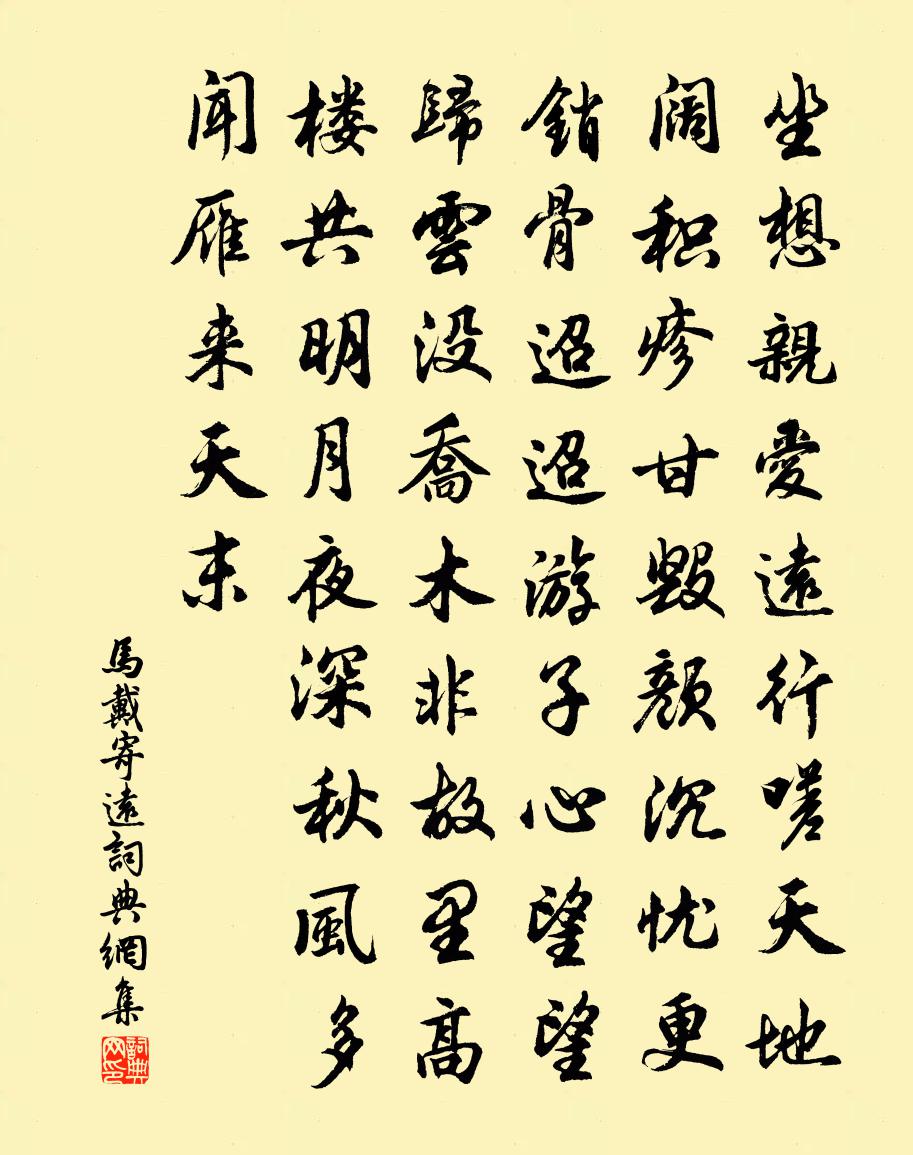 坐想親愛遠行嗟天地
阔积疹甘毀顔沉忧更
銷骨迢迢游子心望望
歸雲没喬木非故里高
楼共明月夜深秋風多
闻雁来天末
馬戴寄遠詞典網集
詞典网印